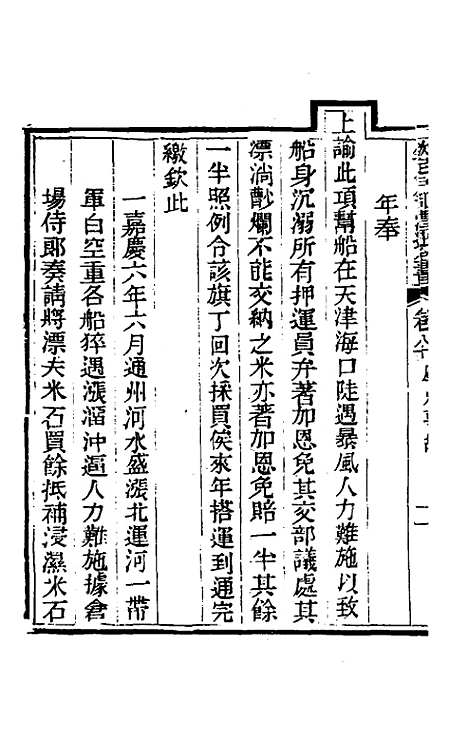 年奉
上諭此項幫船在天津海口陡遇暴風人力難施以致
船身沉溺所有押運員弁著加恩免其交部議處其
漂淌黴爛不能交納之米亦著加恩免賠一半其餘
一半照例令該旗丁回次採買俟來年搭運到通完
繳欽此
一嘉慶六年六月通州河水盛漲北運河一帶
軍白空重各船猝遇漲溜沖逼人力難施據倉
場侍郎奏請將漂失米石買餘抵補浸濕米石